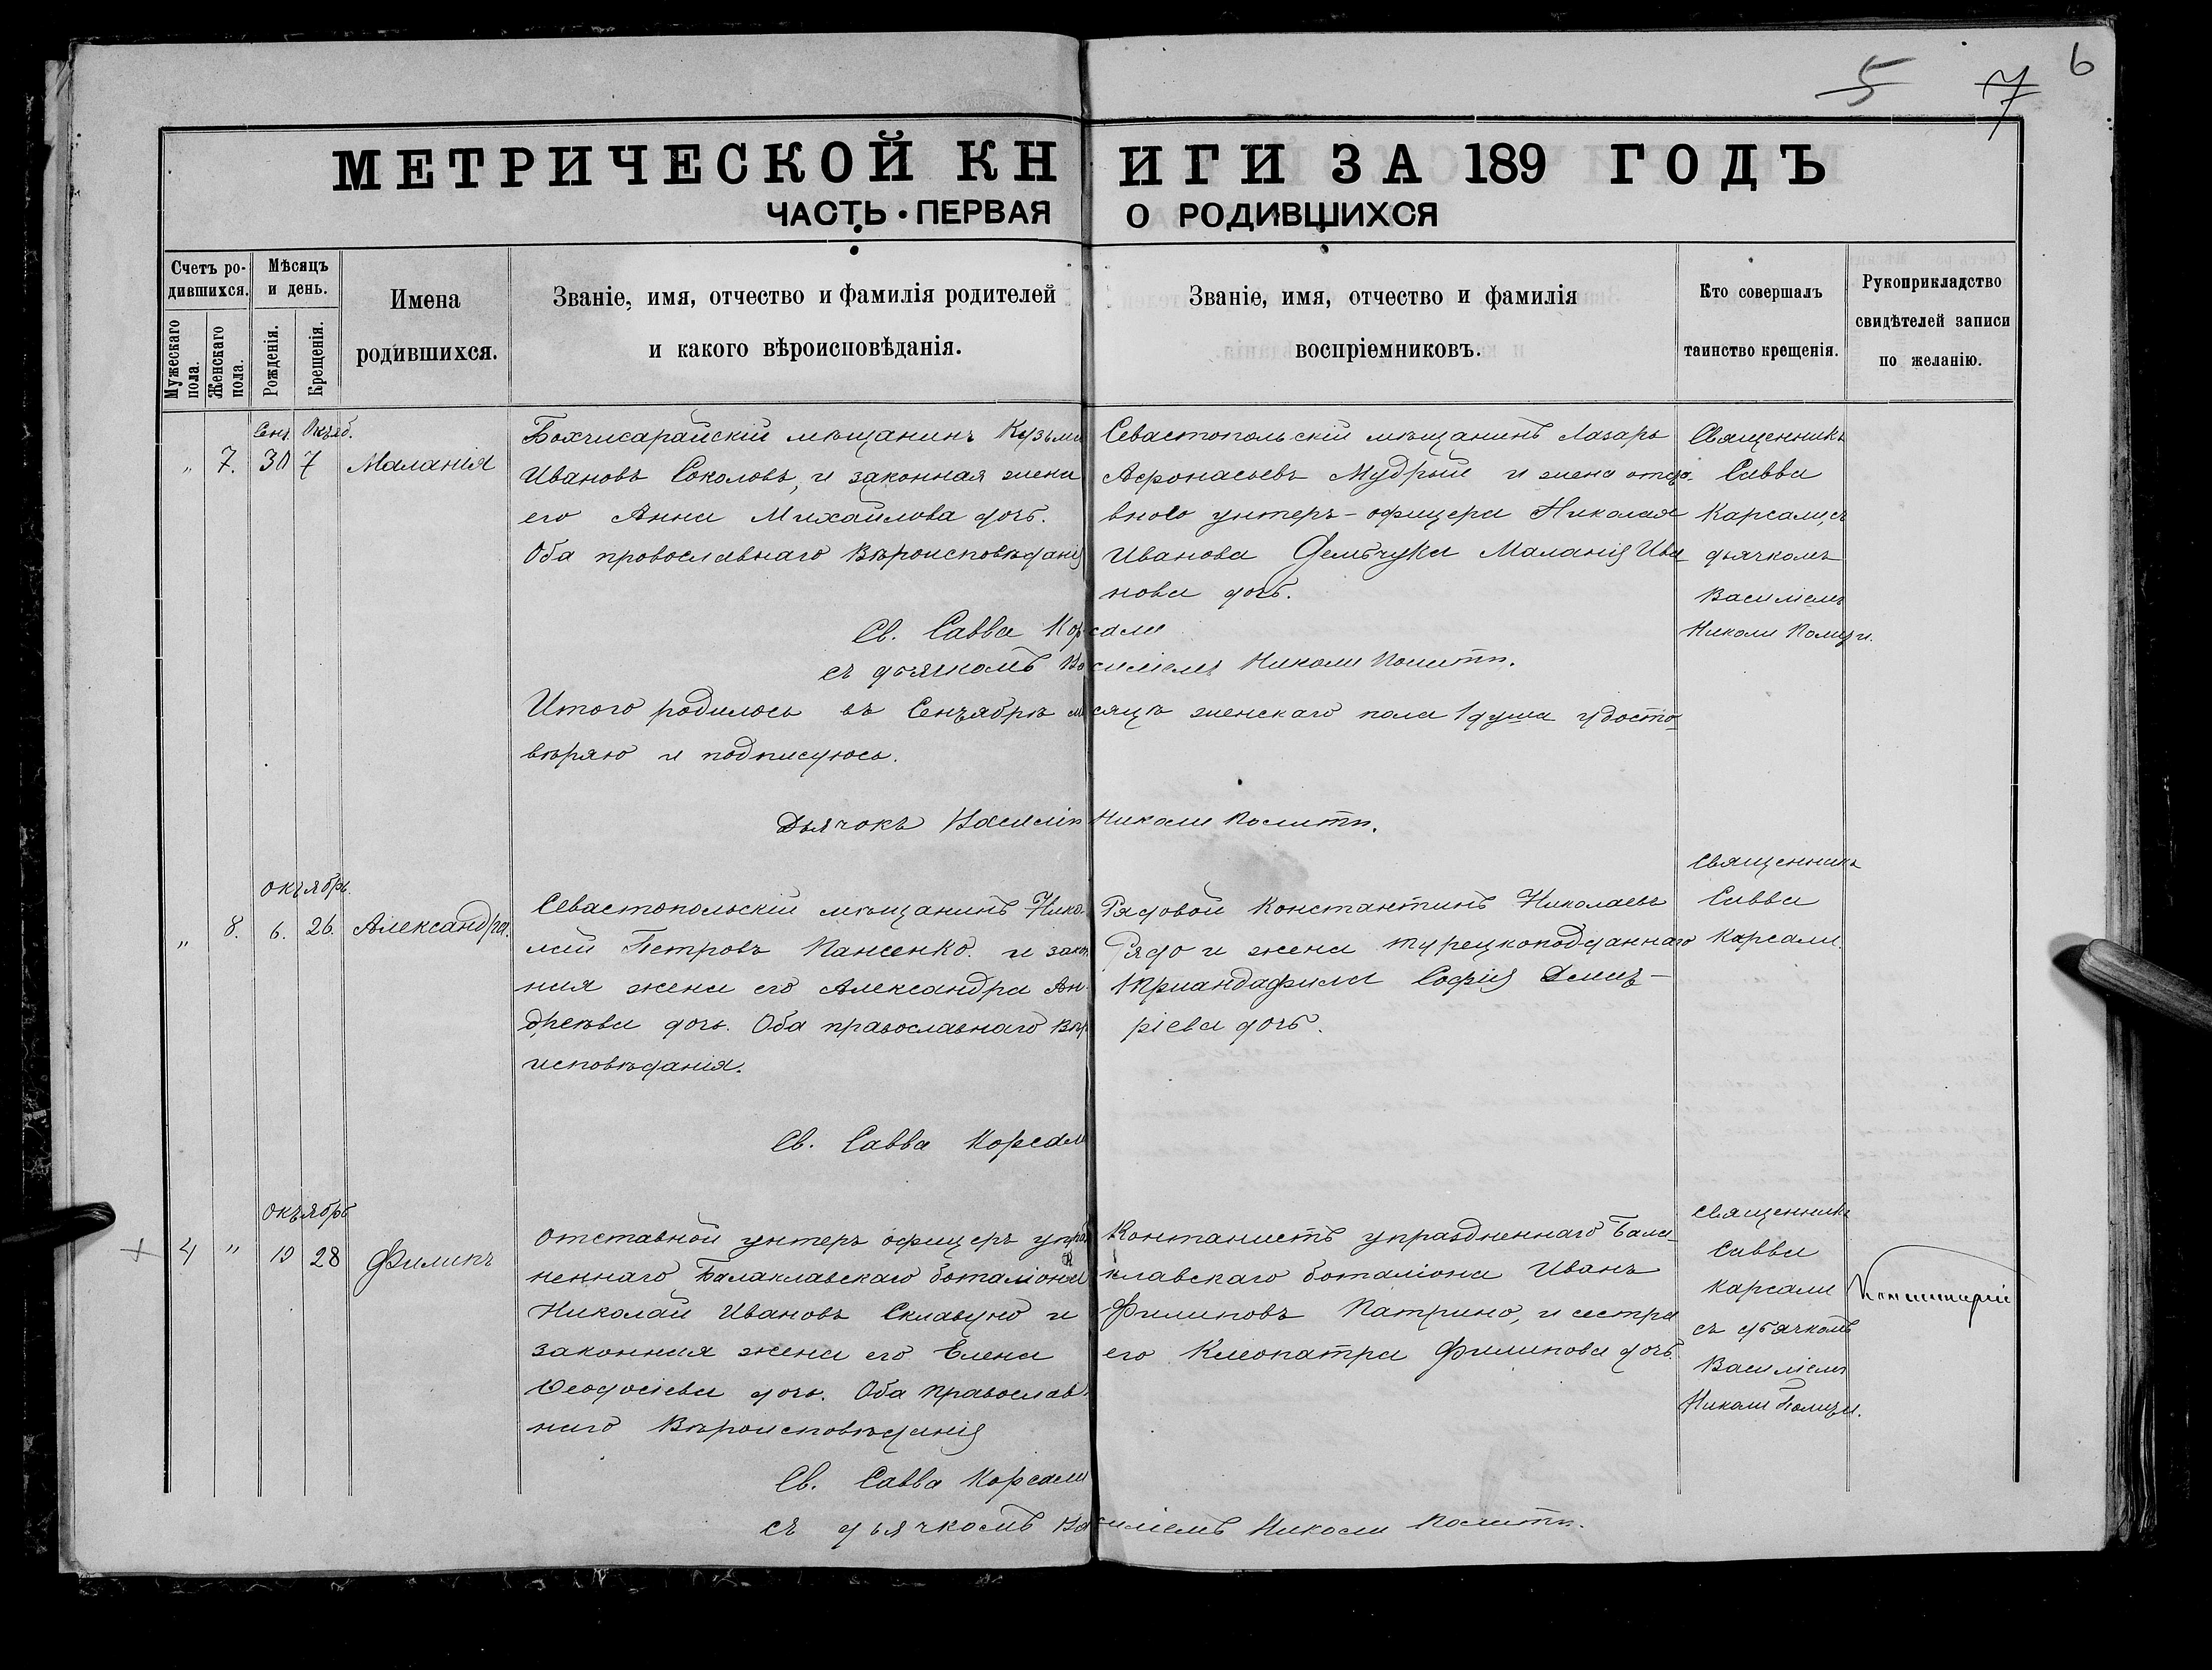 5 7 6
МЕТРИЧЕСКОЙ КНИГИ ЗА 189 ГОДЪ
ЧАСТЬ ПЕРВАЯ О РОДИВШИХСЯ
Счетъ ро-
дившихся.
Мужескаго пола.
Женскаго пола.
Мѣсяцъ
и день.
Рожденія.
Крещенія.
Имена
родившихся.
Званіе, имя, отчество и фамилія родителей
и какого вѣроисповѣданія.
Званіе, имя, отчество и фамилія
воспріемниковъ.
Кто совершалъ
таинство крещенія.
Рукоприкладство
свидѣтелей записи
по желанію.
Сент. Октяб.
„ 7. 30 7 Маланія
Бахчисарайскій мѣщанинъ Кузьма
Ивановъ Соколовъ, и законная жена
его Анна Михайлова дочь.
Оба провославнаго Вѣроисповѣданія
Севастопольскій мѣщанинъ Лазарь
Афонасьевъ Мудрый и жена отста-
вного унтеръ-офицера Николая
Иванова Демьчука Маланія Ива-
нова дочь.
Священникъ
Савва
Карсали, съ
дьячкомъ
Василіемъ
Николи Полити.
Св. Савва Корсали
съ дьячкомъ Василіемъ Николи Полити.
Итого родилось въ Сентябрѣ мѣсяцѣ женскаго пола 1 душа удосто-
вѣряю и подписуюсь.
Дьячокъ Василій Николи Полити.
октябрь.
„ 8. 6. 26. Александра.
Севастопольскій мѣщанинъ Нико-
лай Петровъ Пансенко. и закон
ная жена его Александра Ан-
дрѣева дочь. Оба православнаго Вѣро
исповѣданія.
Рядовой Константинъ Николаевъ
Рядо и жена турецкоподданнаго
Тріандафила Софія Дмит-
ріева дочь.
Священникъ
Савва
Карсали.
Св. Савва Корсали
октябрь
+ 4 „ 10 28 Филипъ
Отставной унтеръ офицеръ упраз
неннаго Балаклавскаго боталіона
Николай Ивановъ Склавуно и
законная жена его Елена
Ѳеодосіева дочь. Оба Православ-
наго Вѣроисповѣданія
Контанистъ упраздненнаго Бала-
клавскаго боталіона Иванъ
Филиповъ Патрино, и сестра
его Клеопатра Филипова дочь.
Священникъ
Савва
Карсали
съ дьячкомъ
Василіемъ
Николи Полити.
Св. Савва Корсали
съ дьячкомъ Василіемъ Николи Полити.